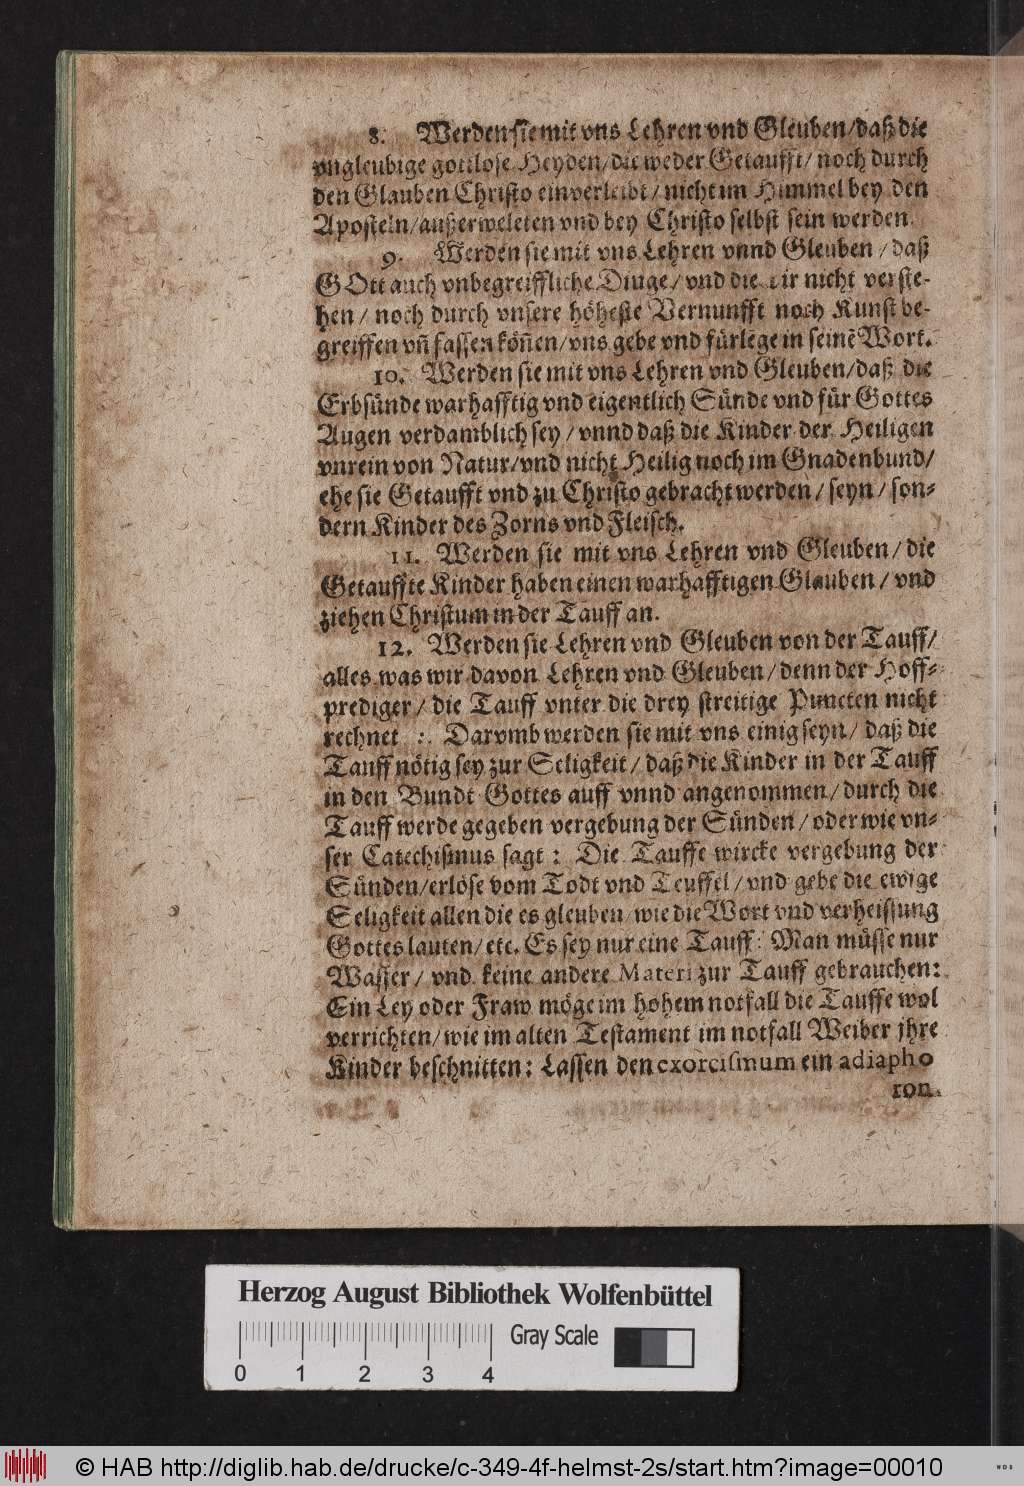 8. Werden sie mit vns Lehren vnd Gleuben/daß die
vngleubige gottlose Heyden/die weder Getaufft/noch durch
den Glauben Christo einverleibt/nicht im Himmel bey den
Aposteln/außerweleten vnd bey Christo selbst sein werden.
9. Werden sie mit vns Lehren vnnd Gleuben/daß
GOtt auch vnbegreiffliche Dinge/vnd die wir nicht verste-
hen/noch durch vnsere höheste Vernunfft noch Kunst be-
greiffen vñ fassen köñen/vns gebe vnd fürlege in seinē Wort.
10. Werden sie mit vns Lehren vnd Gleuben/daß die
Erbsünde warhafftig vnd eigentlich Sünde vnd für Gottes
Augen verdamblich sey/vnnd daß die Kinder der Heiligen
vnrein von Natur/vnd nicht Heilig noch im Gnadenbund/
ehe sie Getaufft vnd zu Christo gebracht werden/seyn/son-
dern Kinder des Zorns vnd Fleisch.
11. Werden sie mit vns Lehren vnd Gleuben/die
Getauffte Kinder haben einen warhafftigen Glauben/vnd
ziehen Christum in der Tauff an.
12. Werden sie Lehren vnd Gleuben von der Tauff/
alles was wir davon Lehren vnd Gleuben/denn der Hoff-
prediger/die Tauff vnter die drey streitige Puncten nicht
rechnet :. Darvmb werden sie mit vns einig seyn/daß die
Tauff nötig sey zur Seligkeit/daß die Kinder in der Tauff
in den Bundt Gottes auff vnnd angenommen/durch die
Tauff werde gegeben vergebung der Sünden/oder wie vn-
ser Catechismus sagt: Die Tauffe wircke vergebung der
Sünden/erlöse vom Todt vnd Teuffel/vnd gebe die ewige
Seligkeit allen die es gleuben/wie die Wort vnd verheissung
Gottes lauten/etc. Es sey nur eine Tauff: Man müsse nur
Wasser/vnd keine andere Materi zur Tauff gebrauchen:
Ein Ley oder Fraw möge im hohem notfall die Tauffe wol
verrichten/wie im alten Testament im notfall Weiber jhre
Kinder beschnitten: Lassen den exorcismum ein adiapho
ron.
Herzog August Bibliothek Wolfenbüttel
Gray Scale
0 1 2 3 4
© HAB http://diglib.hab.de/drucke/c-349-4f-helmst-2s/start.htm?image=00010